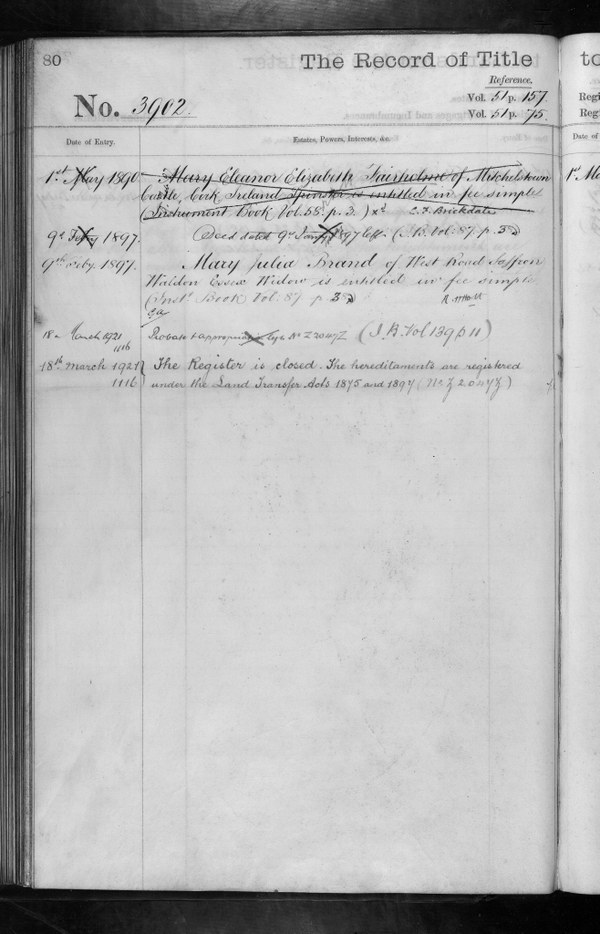 80
The Record of Title
to
Reference.
No. 3902.
Vol. 51 p. 157.
Vol. 51 p. 75.
Regi
Reg
Date of Entry.
Estates, Powers, Interests, &c.
Date of
1st May 1890
Mary Eleanor Elizabeth Fairholme of Mitchelstown
1st Ma
Castle, Cork Ireland Spinster is entitled in fee simple
(Instrument Book Vol. 58. p. 3.) C. F. Brickdale
9th Feby 1897.
Deed dated 9th Jany 1897 left (I. B. Vol. 87. p. 38)
9th Feby. 1897.
Mary Julia Brand of West Road Saffron
Waldon Essex Widow is entitled in fee simple
(Inst. Book Vol. 87 p. 38)
18 March 1921
1116
Probate & appropriation No. Z 2047Z (I. B. Vol 139 p 11)
18th March 1921
The Register is closed. The hereditaments are registered
1116
under the Land Transfer Acts 1875 and 1897 (No. Z 2047Z)